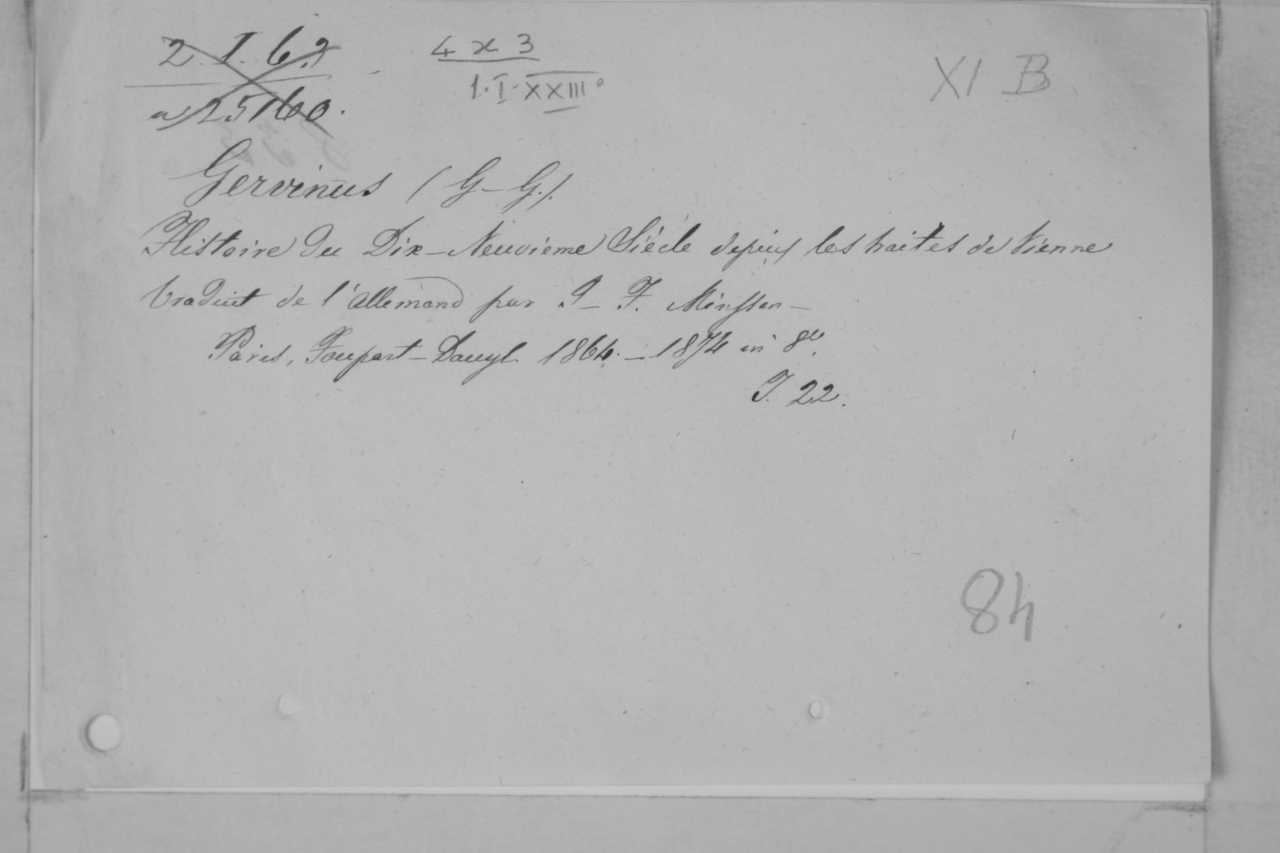 2. I. 6.2
a 25160.
4 x 3
1. I. XXIII°
XI B
Gervinus (G-G.).
Histoire du Dix-Neuvième Siècle depuis les traités de Vienne
traduit de l'allemand par J-F. Minssen-
Paris, Poupart-Davyl 1864.-1874 in 8º.
T. 22.
84